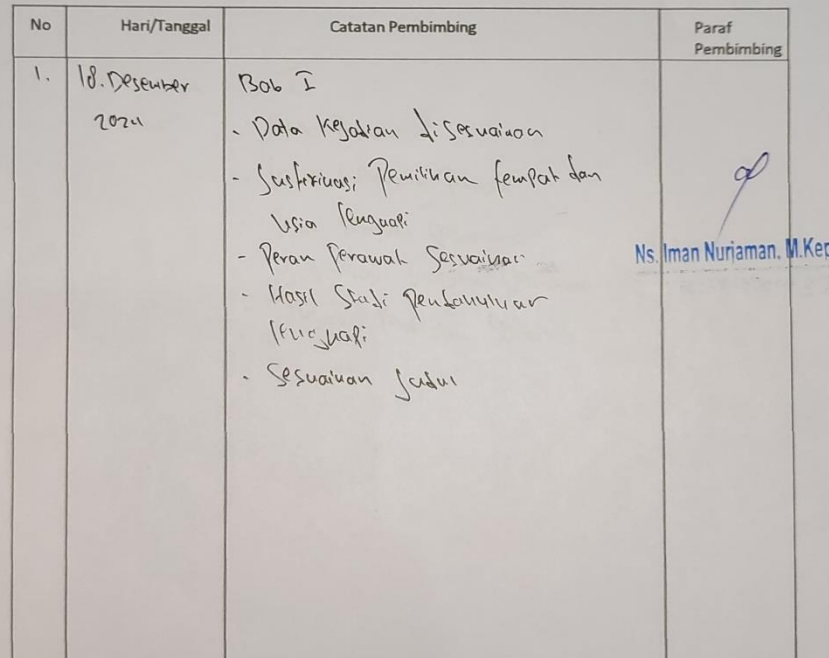 No Hari/Tanggal Catatan Pembimbing Paraf Pembimbing
1. 18. Desember 2024
Bab I
- Data Kejadian disesuaikan
- Justifikasi Pemilihan tempat dan
usia lengkapi
- Peran Perawat Sesuaikan
- Hasil Studi Pendahuluan
lengkapi
- Sesuaikan Judul
Ns. Iman Nurjaman. M.Kep